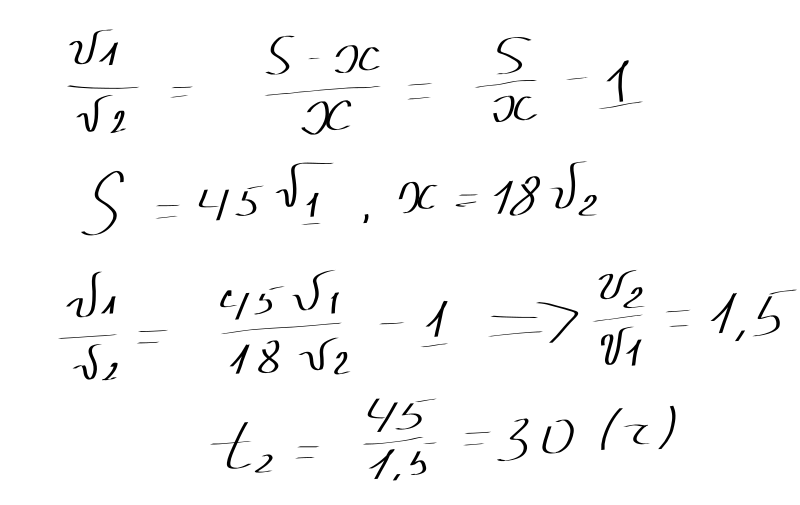 v1/v2 = (S - x)/x = S/x - 1
S = 45 v1, x = 18 v2
v1/v2 = 45 v1/18 v2 - 1 => v2/v1 = 1,5
t2 = 45/1,5 = 30 (г)